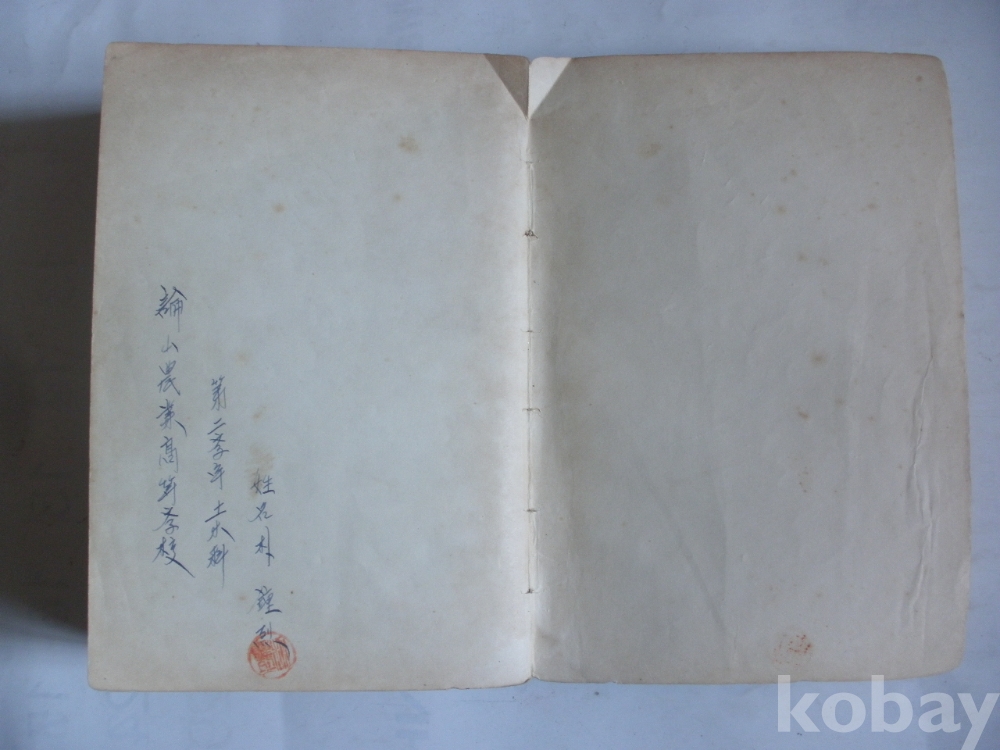 論山農業高等学校
第二学年土木科
姓名朴
kobay